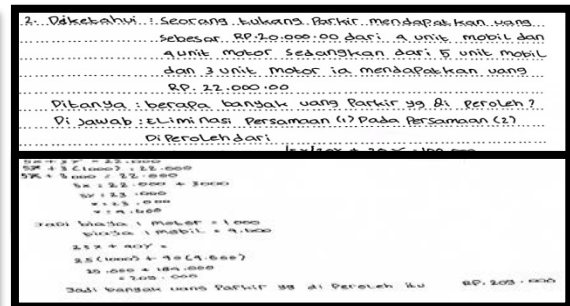 2. Diketahui : Seorang tukang Parkir mendapatkan uang
sebesar RP.20.000.00 dari 4 unit mobil dan
4 unit motor sedangkan dari 5 unit mobil
dan 3 unit motor ia mendapatkan uang
RP. 22.000.00
Ditanya : berapa banyak uang Parkir yg di peroleh ?
Di Jawab : ELiminasi Persamaan (1) Pada Persamaan (2)
DiPerolehdari
5x + 3y = 22.000
5x + 3(1000) : 22.000
5x + 3000 : 22.000
5x : 22.000 + 3000
5x : 23.000
x : 4.600
Jadi biaya 1 motor = 1000
biaya 1 mobil = 4.600
25x + 40y =
25(1000) + 40(4.600)
25.000 + 184.000
= 209.000
Jadi banyak uang Parkir yg di Peroleh itu RP. 209.000